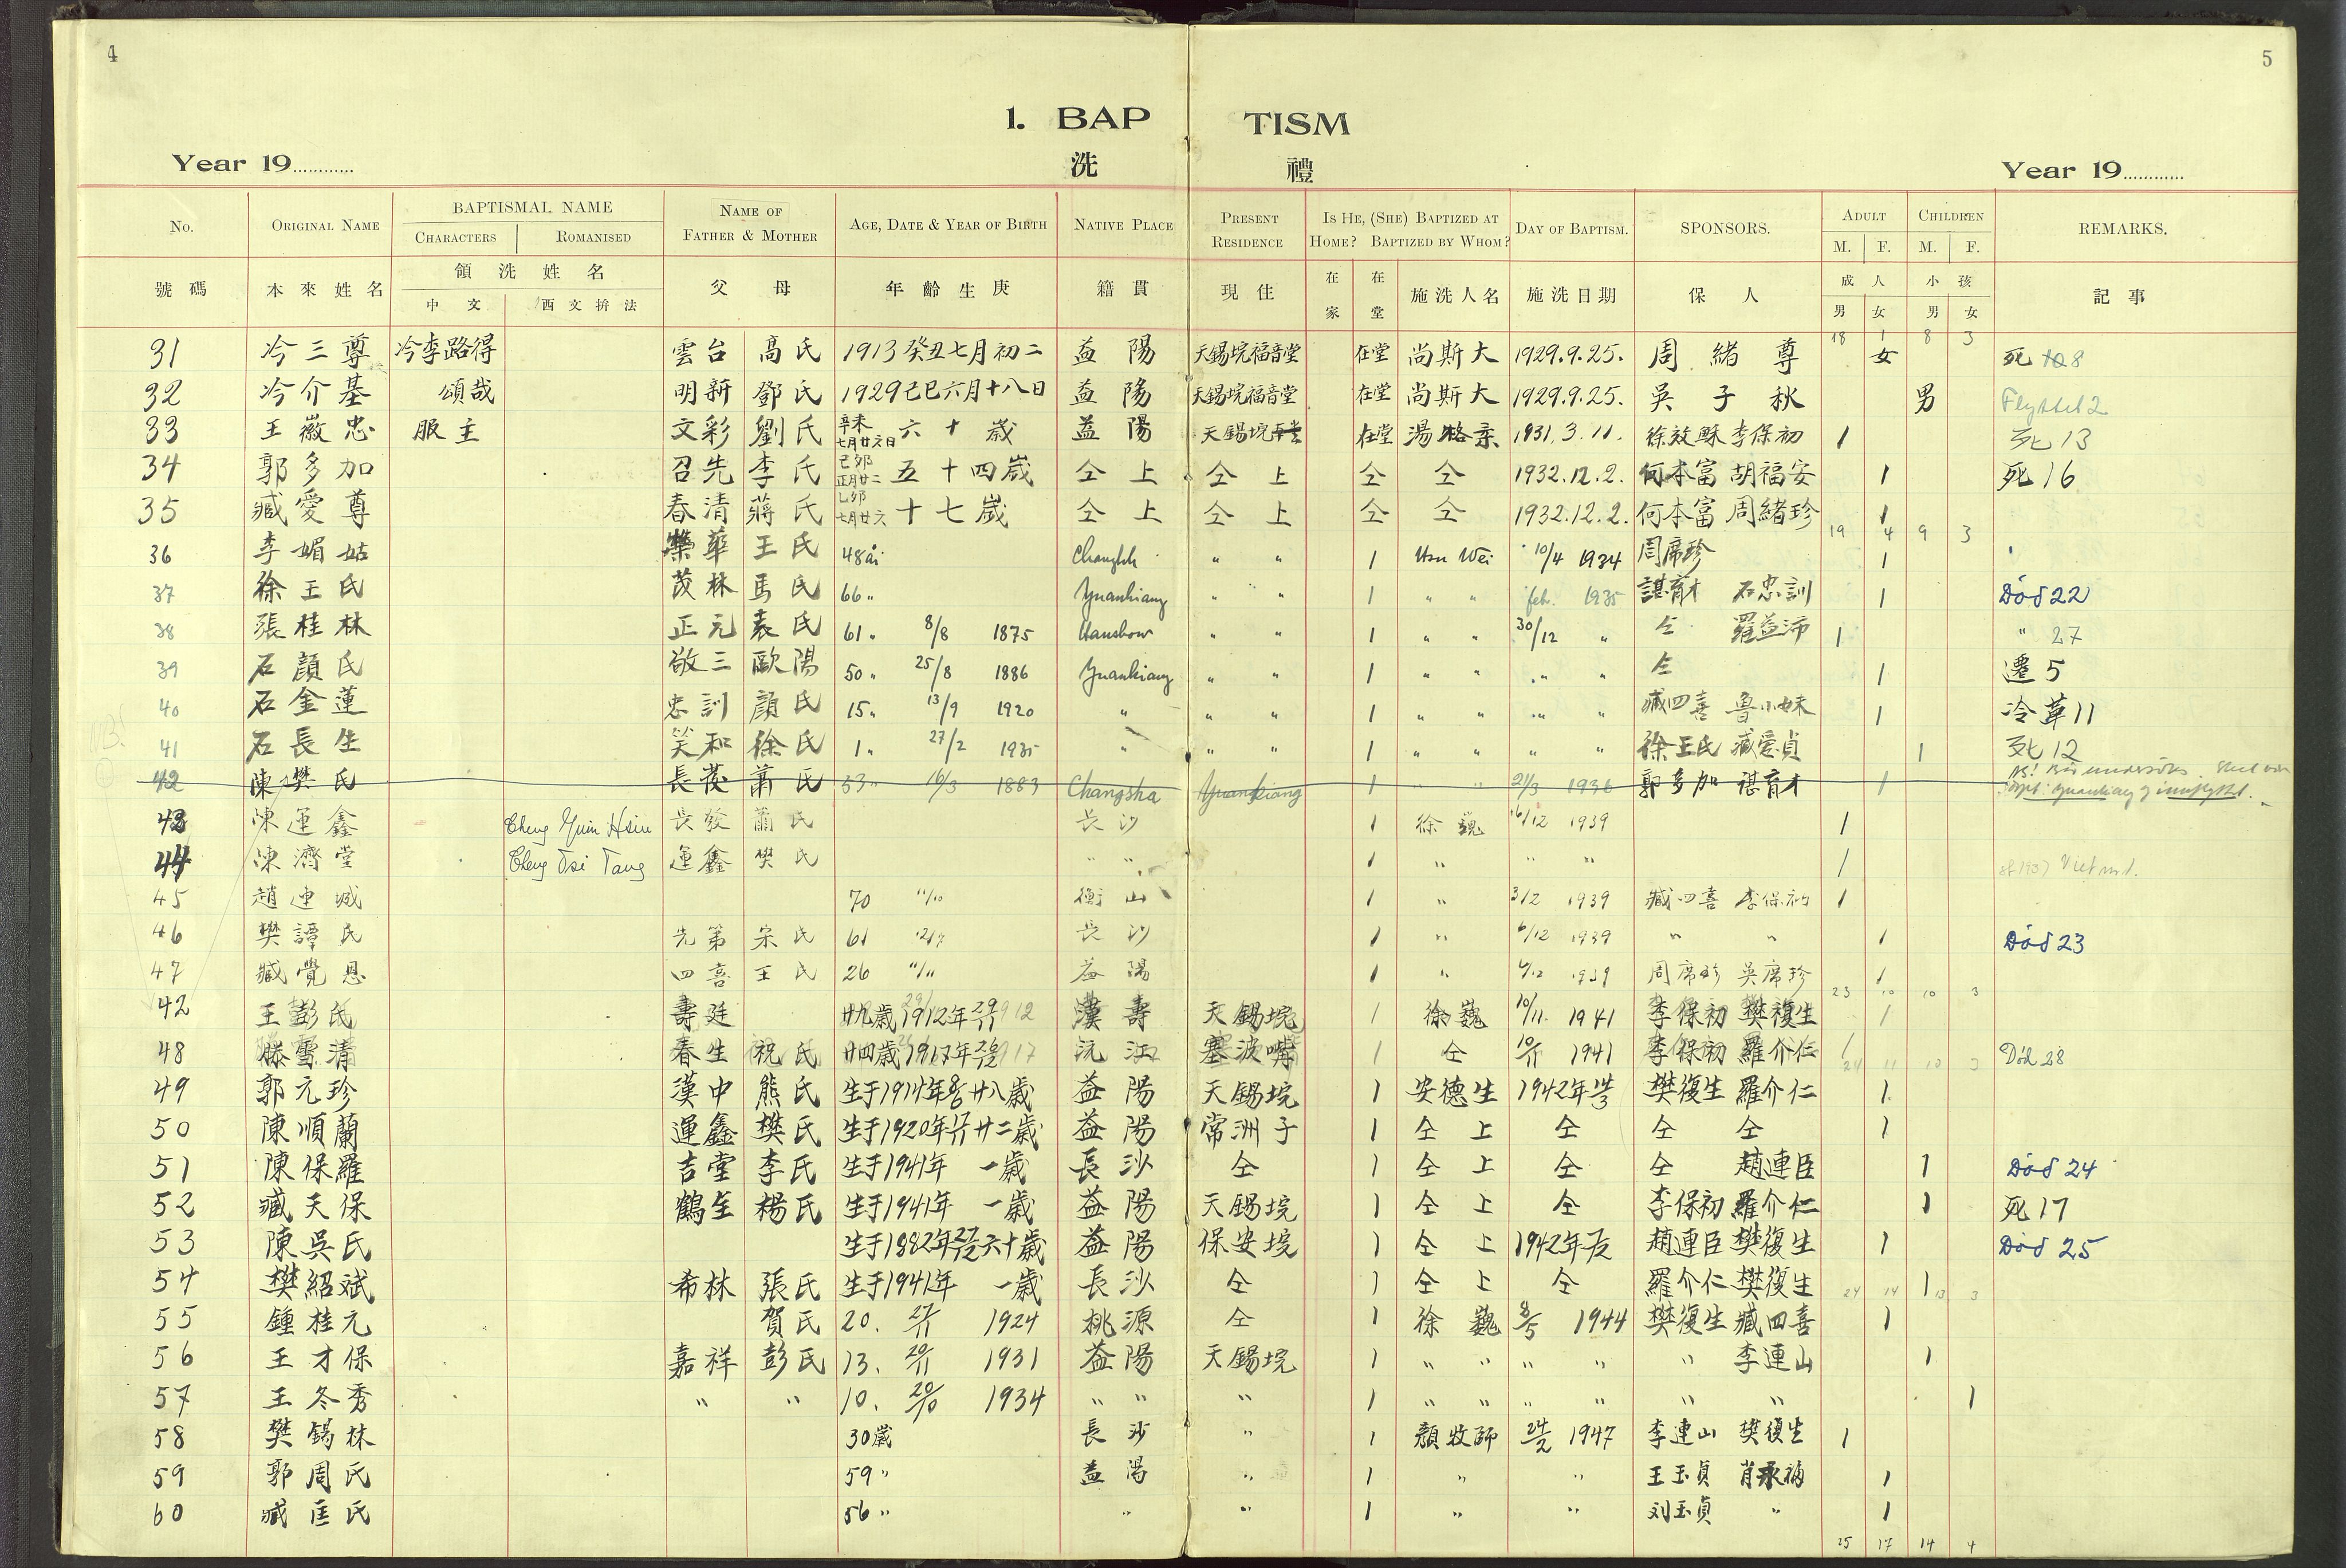 4
5
1. BAP TISM
洗 禮
Year 19............
Year 19............
No. ORIGINAL NAME BAPTISMAL NAME NAME OF FATHER & MOTHER AGE, DATE & YEAR OF BIRTH NATIVE PLACE PRESENT RESIDENCE IS HE, (SHE) BAPTIZED AT HOME? BAPTIZED BY WHOM? DAY OF BAPTISM. SPONSORS. ADULT CHILDREN REMARKS.
CHARACTERS ROMANISED M. F. M. F.
號碼 本來姓名 領洗姓名 父 母 年齡生庚 籍貫 現住 在家 在堂 施洗人名 施洗日期 保人 成人 小孩 記事
中文 西文拚法 男 女 男 女
18 1 8 3
31 冷三尊 冷李路得 雲台 高氏 1913癸丑七月初二 益陽 天錫垸福音堂 在堂 尚斯大 1929.9.25. 周緒尊 女 死 8
32 冷介基 頌哉 明新 鄧氏 1929己巳六月十八日 益陽 天錫垸福音堂 在堂 尚斯大 1929.9.25. 吳子秋 男 Flyttet 2
33 王徽忠 服主 文彩 劉氏 辛未七月廿六日 六十歲 益陽 天錫垸 在堂 湯格示 1931.3.11. 徐效穌 李保初 1 死13
34 郭多加 召先 李氏 己卯正月廿二 五十四歲 仝上 仝上 仝 仝 1932.12.2. 何本富 胡福安 1 死16
35 臧愛尊 春清 蔣氏 乙卯七月廿六 十七歲 仝上 仝上 仝 仝 1932.12.2. 何本富 周緒珍 1
19 4 9 3
36 李媚姑 榮華 王氏 48år " " 1 Hsu Wei 10/4 1934 周席珍 1
37 徐王氏 茂林 馬氏 66 " Yuankiang " " 1 " " feb. 1935 諶育才 石忠訓 1 Död 22
38 張桂林 正元 袁氏 61 " 8/8 1875 Hanshow " " 1 " " 30/12 " 仝 羅益沛 1 " 27
39 石顔氏 敬三 歐陽 50 " 25/8 1886 Yuankiang " " 1 " " " " 仝 1 遷5
40 石金蓮 忠訓 顔氏 15 " 13/9 1920 " " " 1 " " " " 臧四喜 魯小妹 1 冷草11
41 石長生 笑和 徐氏 1 " 27/2 1935 " " " 1 " " " " 徐王氏 臧愛貞 1 死12
42 陳樊氏 長發 蕭氏 53 " 16/3 1883 Changsha Yuankiang 1 " " 21/3 1936 郭多加 諶育才 1
43 陳運鑫 Cheng Yuin Hsin 長發 蕭氏 長沙 1 徐巍 16/12 1939 1
44 陳濟堂 Cheng Tsi Tang 運鑫 樊氏 " " 1 " " " 1
45 趙連城 70 11/10 衡山 1 " 3/12 1939 臧四喜 李保初 1
46 樊譚氏 先第 宋氏 61 長沙 1 " 6/12 1939 " " 1 Död 23
47 臧覺恩 四喜 王氏 26 11/11 益陽 1 " 6/12 1939 周席珍 吳席珍 1
23 10 10 3
42 王彭氏 壽廷 廿九歲1912年29/11 漢壽 天錫垸 1 徐巍 10/11 1941 李保初 樊復生 1
48 滕雪清 春生 祝氏 廿四歲1917年26/12 沅江 塞波嘴 1 仝 10/11 1941 李保初 羅介仁 1 Död 28
24 11 10 3
49 郭元珍 漢中 熊氏 生于1914年8/6廿八歲 益陽 天錫垸 1 安德生 1942年15/3 樊復生 羅介仁 1
50 陳順蘭 運鑫 樊氏 生于1920年17/11廿二歲 益陽 常洲子 1 仝上 仝 仝 仝 1
51 陳保羅 吉堂 李氏 生于1941年 一歲 長沙 仝 1 仝上 仝 仝 趙連臣 1 Död 24
52 臧天保 鶴年 楊氏 生于1941年 一歲 益陽 天錫垸 1 仝上 仝 李保初 羅介仁 1 死17
53 陳吳氏 生于1882年27/12六十歲 益陽 保安垸 1 仝上 1942年7/12 趙連臣 樊復生 1 Död 25
54 樊紹斌 希林 張氏 生于1941年 一歲 長沙 仝 1 仝上 仝 羅介仁 樊復生 1
24 14 13 3
55 鍾桂元 賀氏 20. 27/11 1924 桃源 仝 1 徐巍 8/5 1944 樊復生 臧四喜 1
56 王才保 嘉祥 彭氏 13. 20/11 1931 益陽 天錫垸 1 " " " " " 李連山 1
57 王冬秀 " " 10. 20/10 1934 " " " 1 " " " " " " 1
58 樊錫林 30歲 長沙 " 1 顏牧師 24/2 1947 李連山 樊復生 1
59 郭周氏 59 " 益陽 " 1 " " 王玉貞 肖承福 1
60 臧匡氏 56 " " " 1 " " 刘玉貞 " 1
25 17 14 4